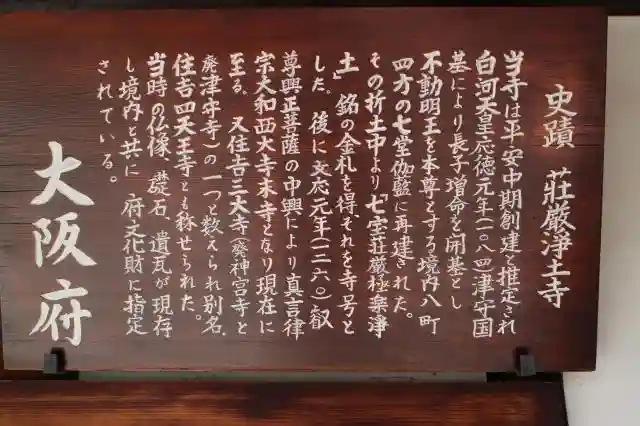 史蹟 荘厳浄土寺
当寺は平安中期創建と推定され
白河天皇応徳元年(一〇八四)津守国
基により長子増命を開基とし
不動明王を本尊とする境内八町
四方の七堂伽藍に再建された。
その折土中より「七宝荘厳極楽浄
土」銘の金札を得、それを寺号と
した。後に文応元年(一二六〇)叡
尊興正菩薩の中興により真言律
宗大和西大寺末寺となり現在に
至る。又住吉三大寺(廃神宮寺と
廃津守寺)の一つと数えられ別名、
住吉四天王寺とも称せられた。
当時の仏像、礎石、遺瓦が現存
し境内と共に 府文化財に指定
されている。
大阪府